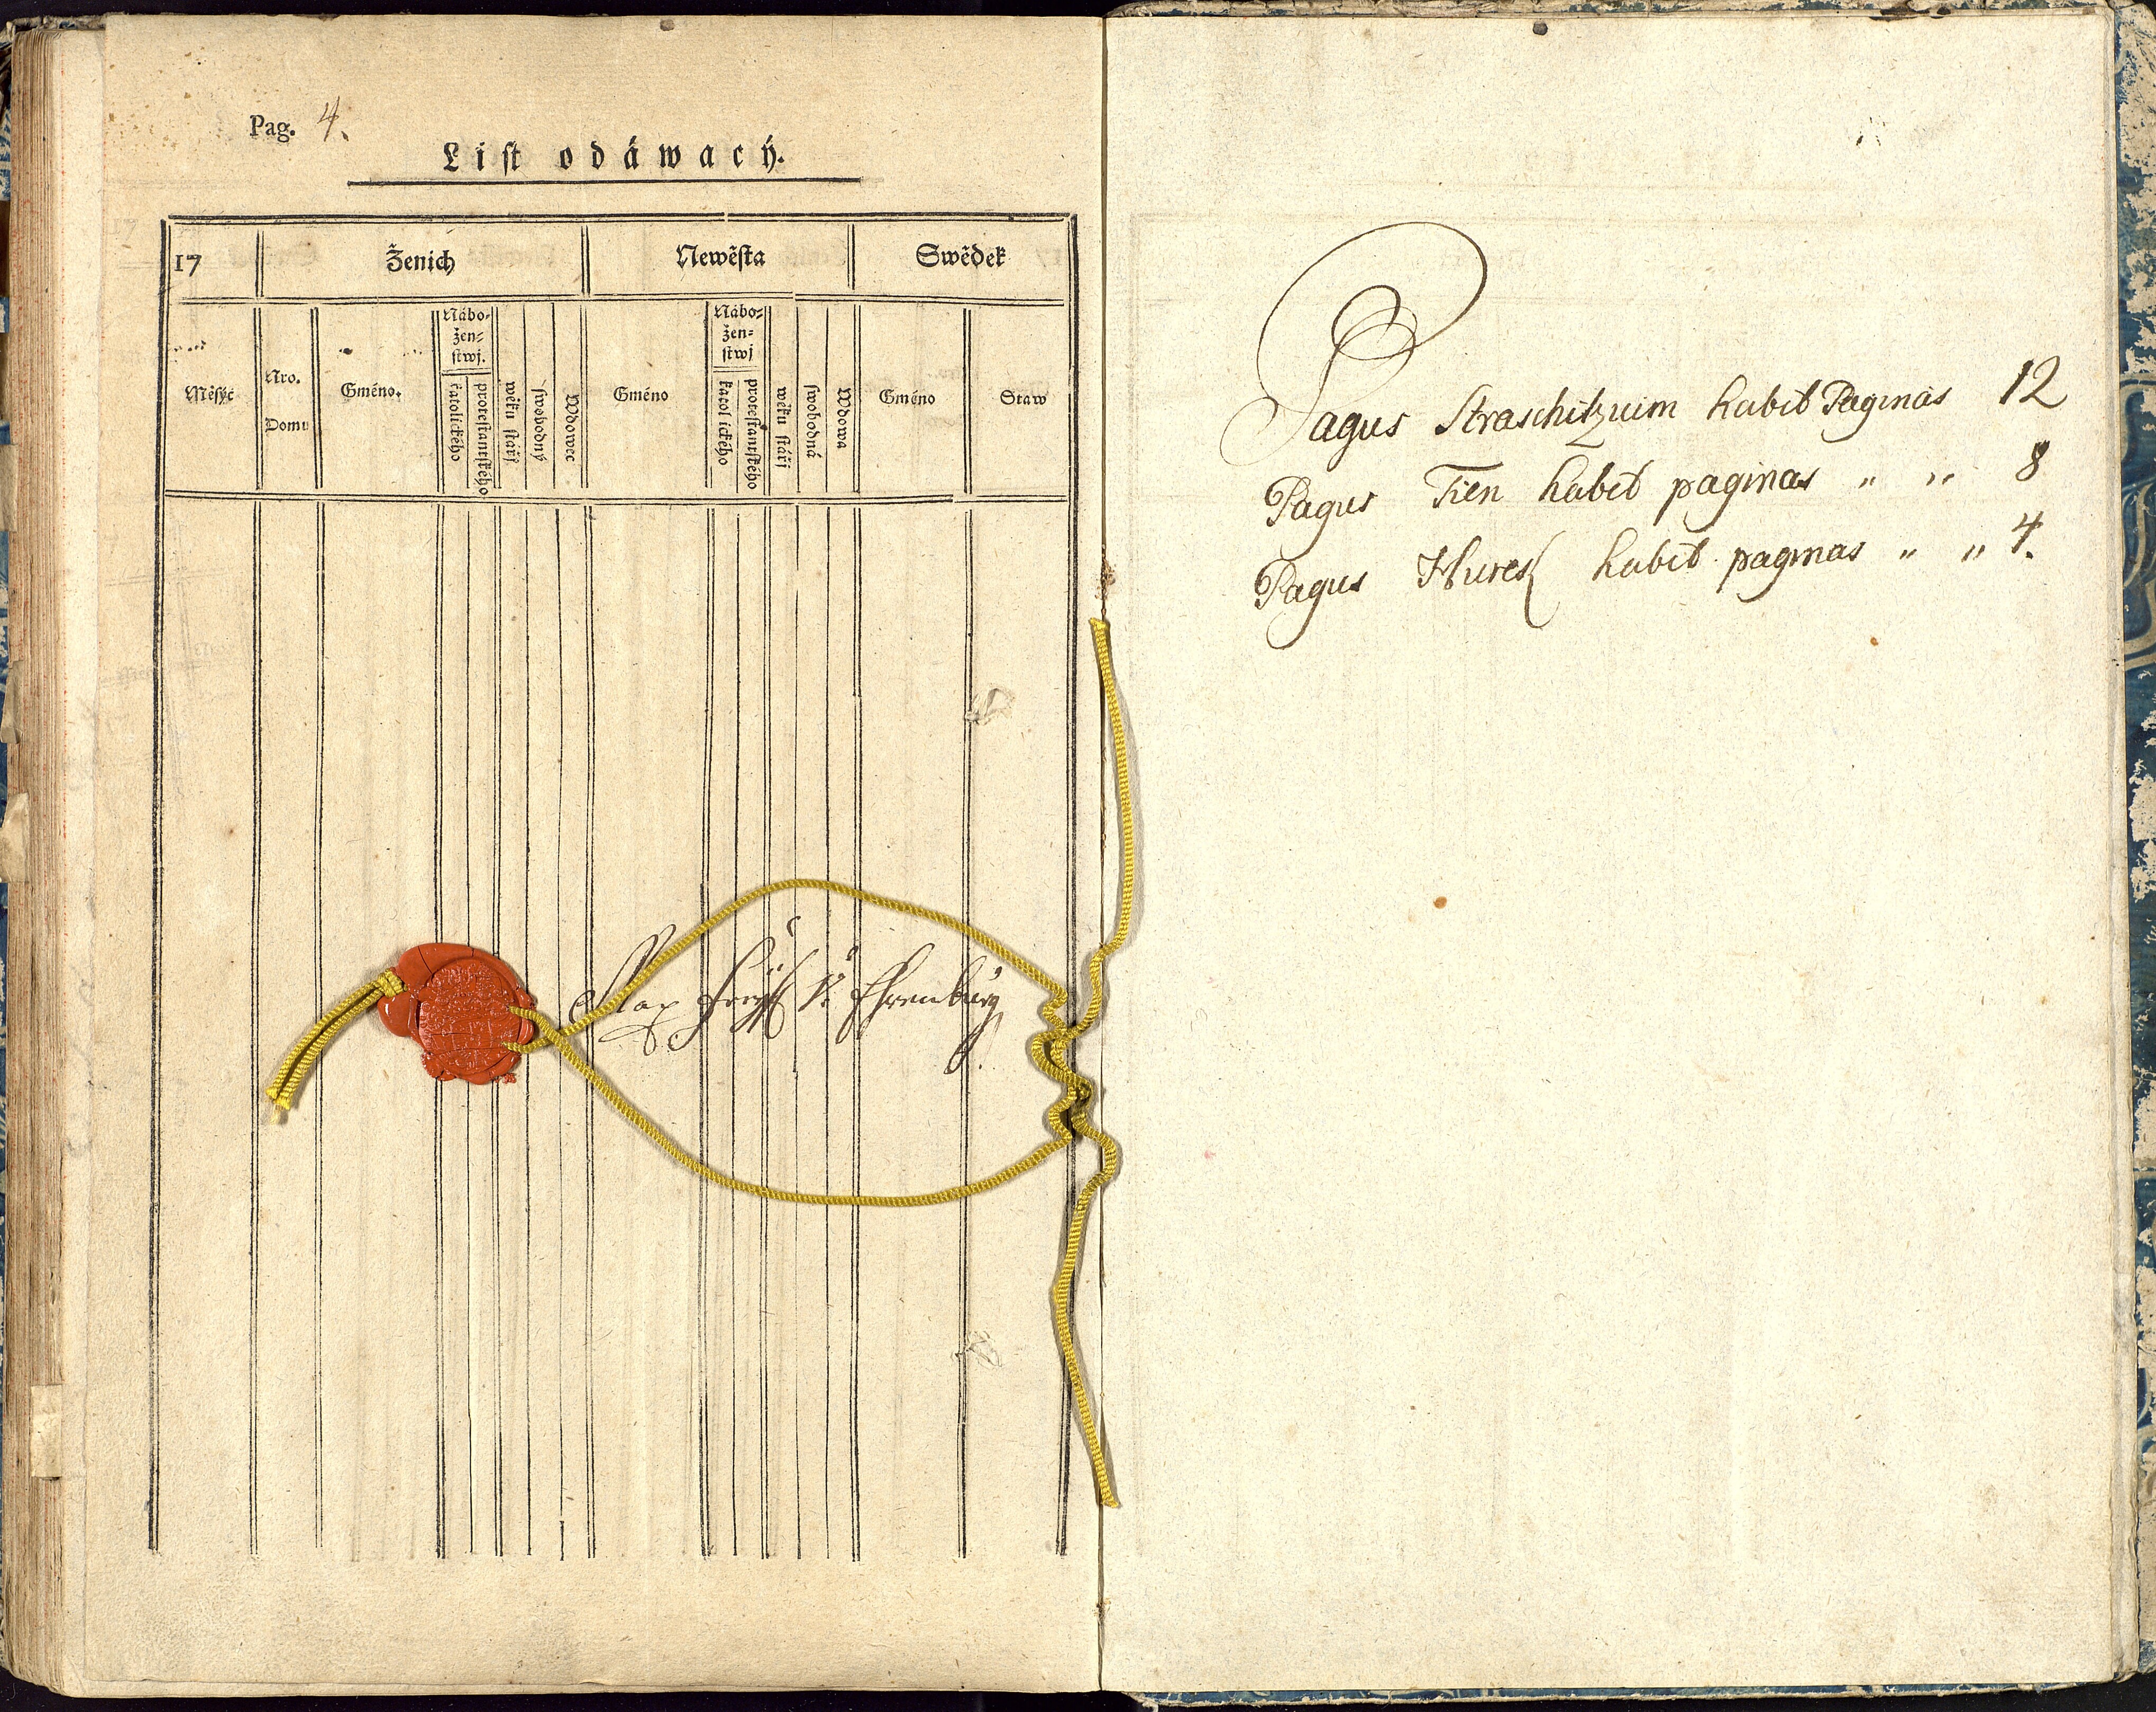 Pag. 4.
List odáwacý.
17
Ženich
Newěsta
Swědek
Měsýc
Nro.
Domu
Gméno.
Nábo-
žen-
stwj.
katolického
protestantského
wěku stářj
swobodný
Wdowec
Gméno
Nábo-
žen-
stwj
katolického
protestantského
wěku stářj
swobodná
Wdowa
Gméno
Staw
Max v. Ehrenburg
Pagus Straschitzium habet Paginas 12
Pagus Tien habet paginas " " 8
Pagus Hurek habet paginas " " 4.